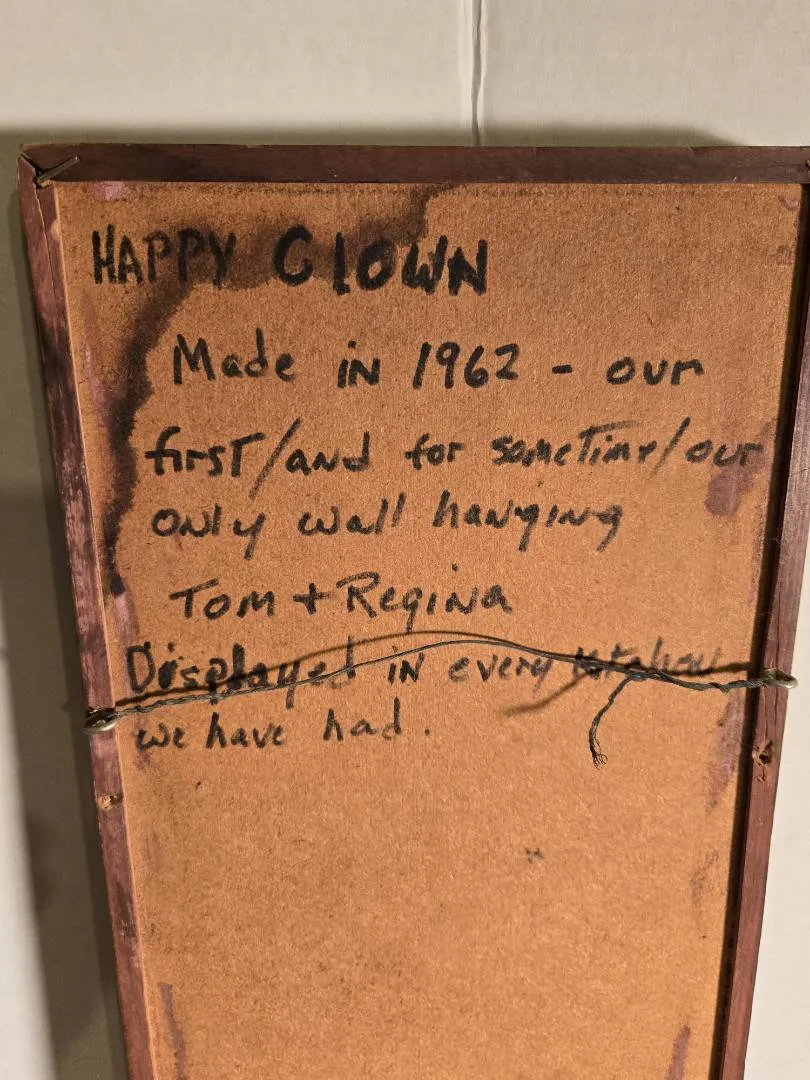 HAPPY ClOWN
Made in 1962 - our
first/and for sometime/our
only wall hanging
Tom + Regina
Displayed in every kitchen
we have had.